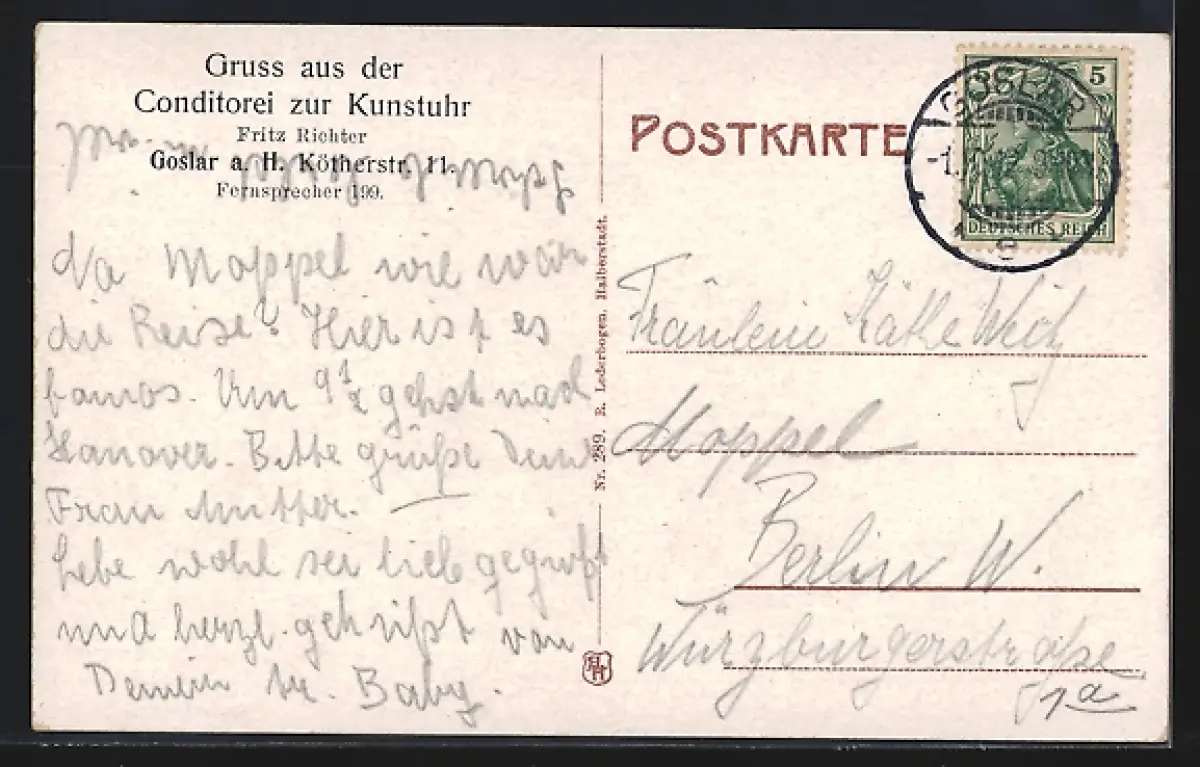 Gruss aus der
Conditorei zur Kunstuhr
Fritz Richter
Goslar a. H. Kötherstr. 11.
Fernsprecher 199.
Na Moppi wie war
die Reise? Hier ist es
famos. Um 9 1/2 gehst nach
Hanover. Bitte grüße Deine
Frau Mutter. —
Lebe wohl sei lieb gegrüßt
und herzl. geküßt von
Deinem Baby.
Nr. 289. R. Lederbogen, Halberstadt.
HH
POSTKARTE
GOSLAR
5
DEUTSCHES REICH
Fräulein Käthe
Moppel
Berlin W.
Würzburgerstraße
1a